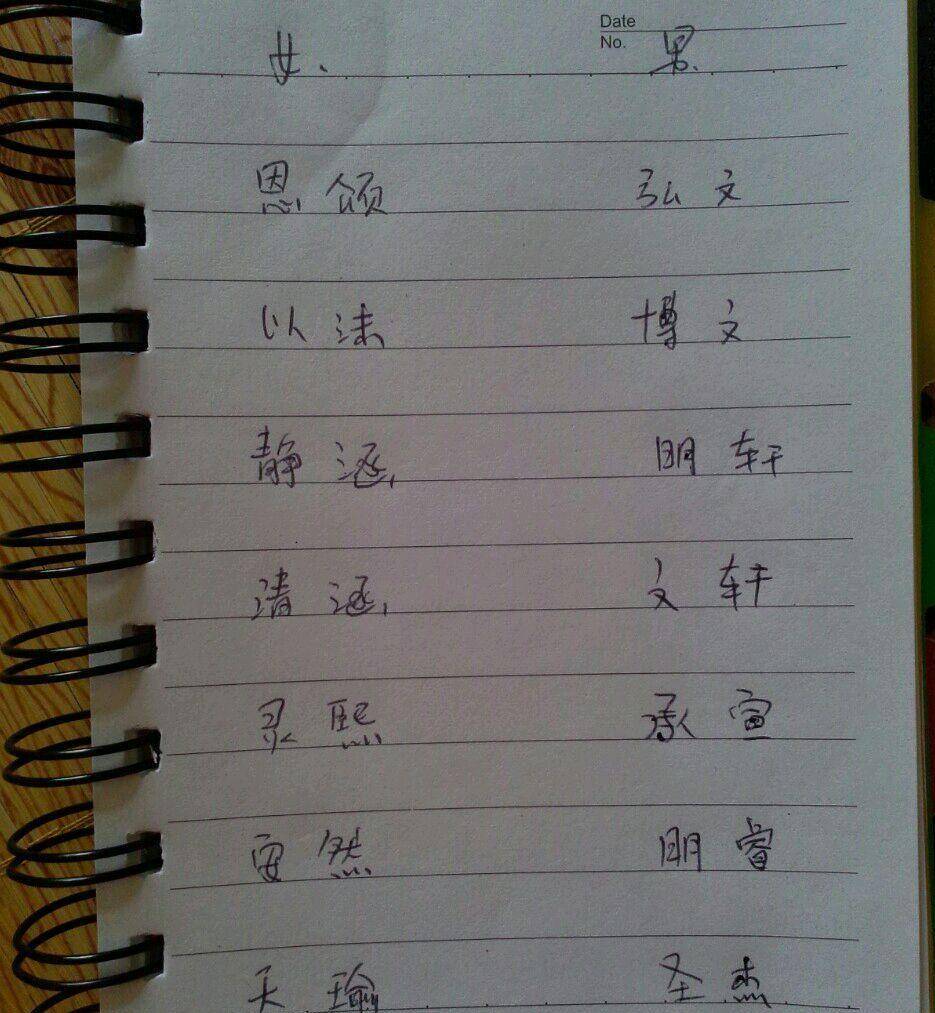 Date
No.
女. 男.
恩颂 弘文
以沫 博文
静涵, 明轩
清涵, 文轩
灵熙 承宣
安然 明睿
天瑜 圣杰